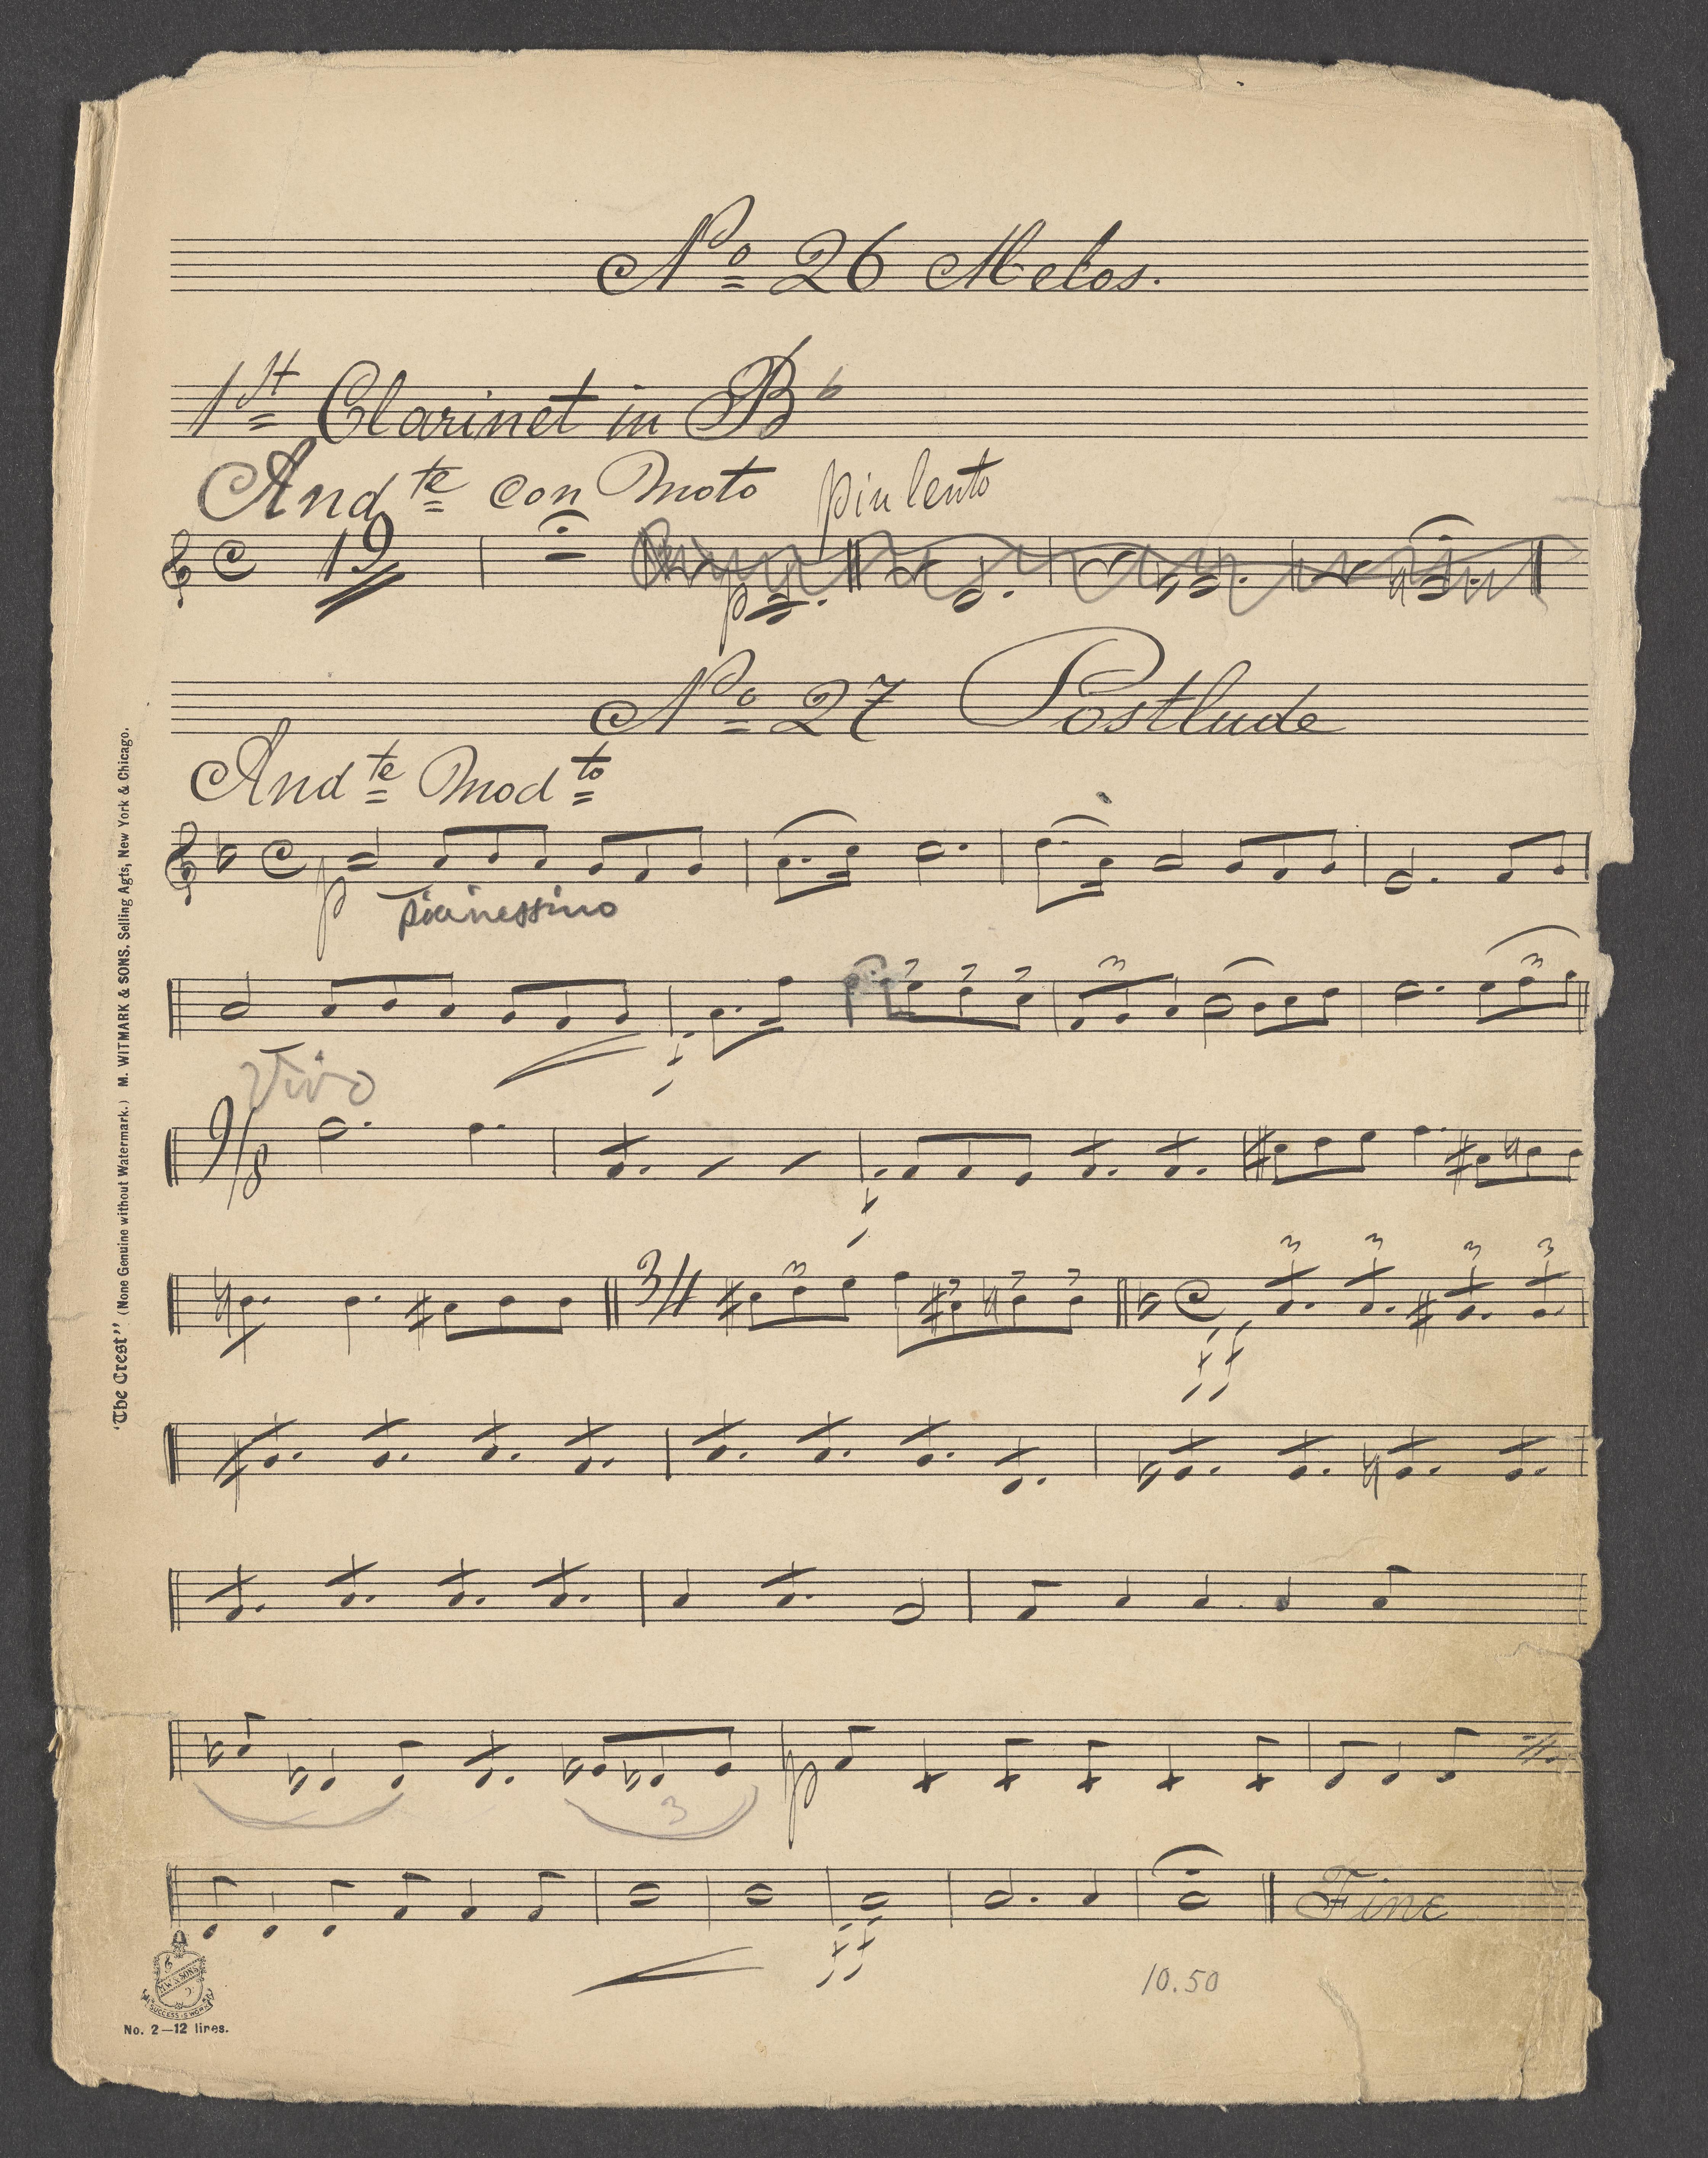 No 26 Melos.
1st Clarinet in B♭
Andte con Moto piu lento
C 19
p
No 27 Postlude
Andte Modto
C p
pianessino
3 3 3 3 3 3
f
Vivo
9/8
f
3/4 3 3 3 3 C 3 3 3 3
ff
p
3
Fine
ff
10.50
"The Crest" (None Genuine without Watermark.) M. WITMARK & SONS. Selling Agts, New York & Chicago.
M.W. & SONS
SUCCESS IS WORK
No. 2—12 lines.